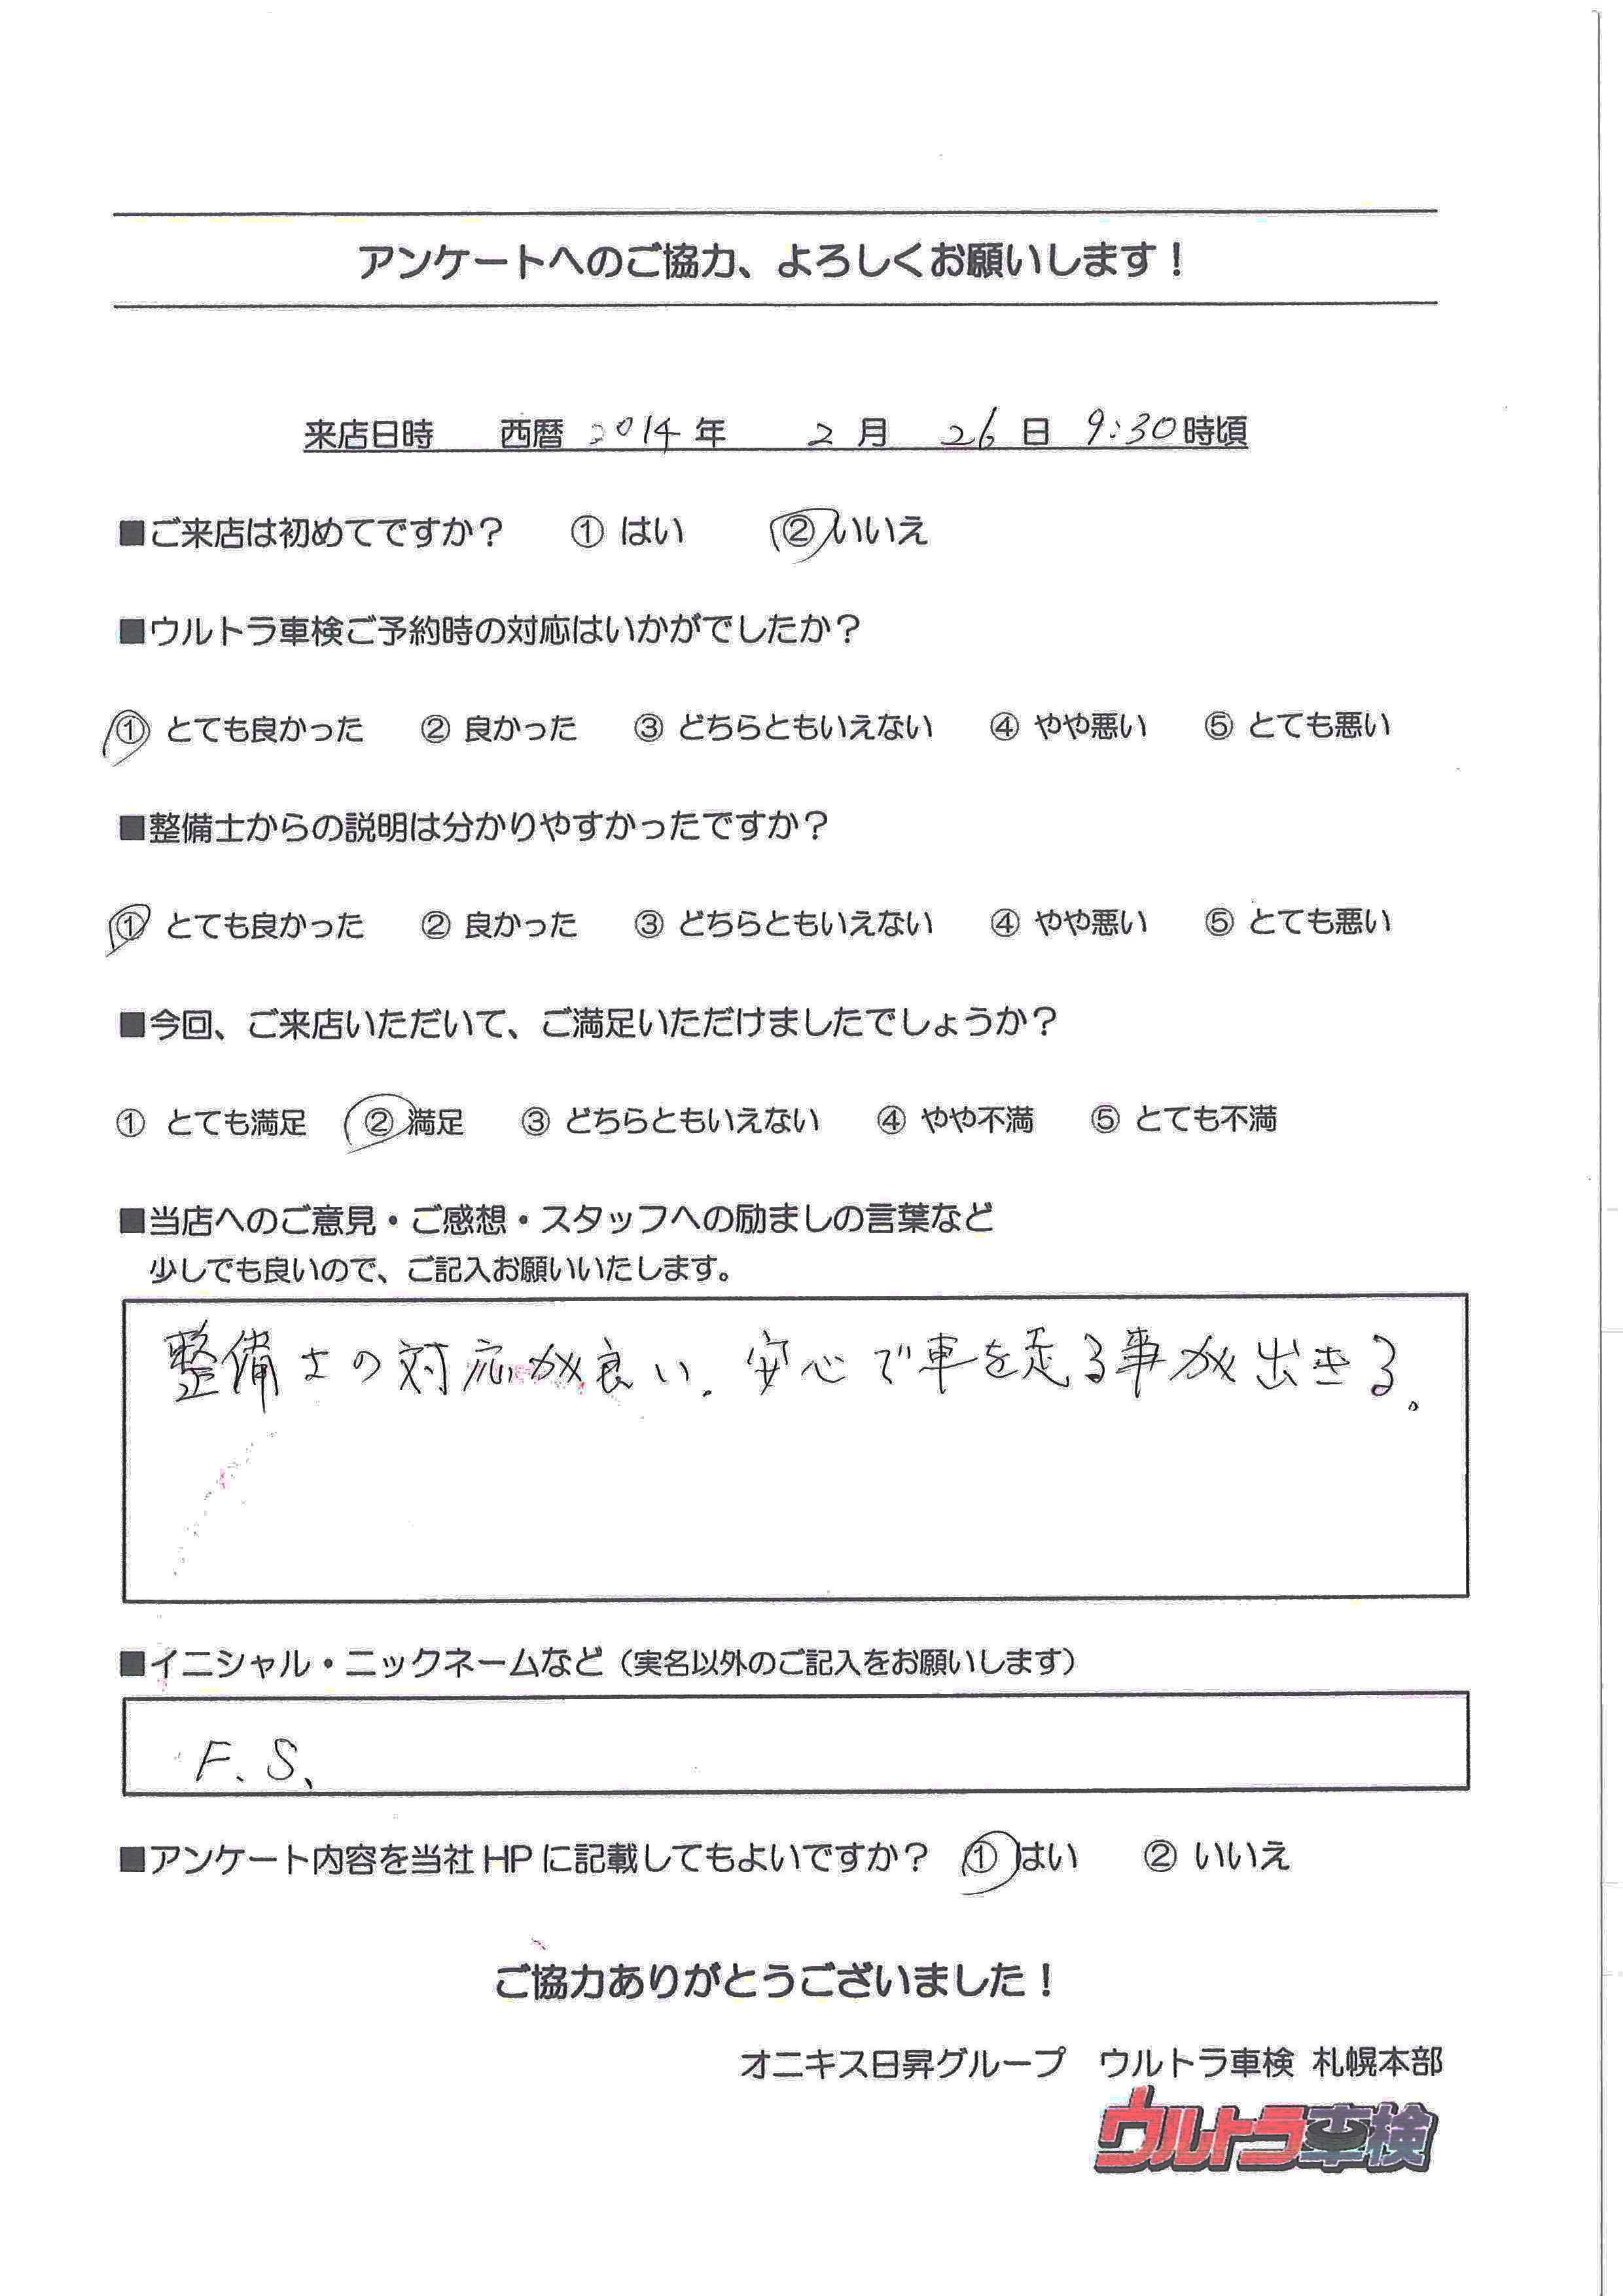 アンケートへのご協力、よろしくお願いします！
来店日時　西暦 2014 年　2 月　26 日 9:30 時頃
■ご来店は初めてですか？　① はい　② いいえ
■ウルトラ車検ご予約時の対応はいかがでしたか？
① とても良かった　② 良かった　③ どちらともいえない　④ やや悪い　⑤ とても悪い
■整備士からの説明は分かりやすかったですか？
① とても良かった　② 良かった　③ どちらともいえない　④ やや悪い　⑤ とても悪い
■今回、ご来店いただいて、ご満足いただけましたでしょうか？
① とても満足　② 満足　③ どちらともいえない　④ やや不満　⑤ とても不満
■当店へのご意見・ご感想・スタッフへの励ましの言葉など
少しでも良いので、ご記入お願いいたします。
整備士の対応が良い. 安心で車を走る事が出きる。
■イニシャル・ニックネームなど（実名以外のご記入をお願いします）
F. S.
■アンケート内容を当社 HP に記載してもよいですか？　① はい　② いいえ
ご協力ありがとうございました！
オニキス日昇グループ　ウルトラ車検 札幌本部
ウルトラ車検